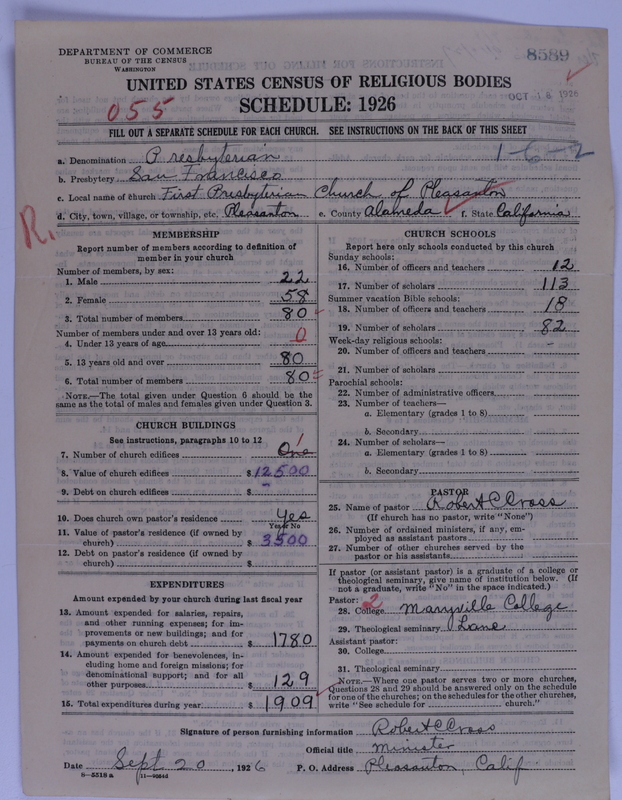 DEPARTMENT OF COMMERCE
BUREAU OF THE CENSUS
WASHINGTON
8589
UNITED STATES CENSUS OF RELIGIOUS BODIES
OCT 18 1926
055
SCHEDULE: 1926
FILL OUT A SEPARATE SCHEDULE FOR EACH CHURCH. SEE INSTRUCTIONS ON THE BACK OF THIS SHEET
1-6-2
a. Denomination Presbyterian
b. Presbytery San Francisco
c. Local name of church First Presbyterian Church of Pleasanton
d. City, town, village, or township, etc. Pleasanton e. County Alameda f. State California
R.
MEMBERSHIP
Report number of members according to definition of
member in your church
Number of members, by sex:
1. Male 22
2. Female 58
3. Total number of members 80
Number of members under and over 13 years old:
4. Under 13 years of age 0
5. 13 years old and over 80
6. Total number of members 80
NOTE.—The total given under Question 6 should be the
same as the total of males and females given under Question 3.
CHURCH BUILDINGS
See instructions, paragraphs 10 to 12
7. Number of church edifices One 1
8. Value of church edifices $ 12500
9. Debt on church edifices $ -
10. Does church own pastor's residence Yes
Yes or No
11. Value of pastor's residence (if owned by
church) $ 3500
12. Debt on pastor's residence (if owned by
church) $
EXPENDITURES
Amount expended by your church during last fiscal year
13. Amount expended for salaries, repairs,
and other running expenses; for im-
provements or new buildings; and for
payments on church debt $ 1780
14. Amount expended for benevolences, in-
cluding home and foreign missions; for
denominational support; and for all
other purposes $ 129
15. Total expenditures during year $ 1909
CHURCH SCHOOLS
Report here only schools conducted by this church
Sunday schools:
16. Number of officers and teachers 12
17. Number of scholars 113
Summer vacation Bible schools:
18. Number of officers and teachers 18
19. Number of scholars 82
Week-day religious schools:
20. Number of officers and teachers -
21. Number of scholars
Parochial schools:
22. Number of administrative officers
23. Number of teachers—
a. Elementary (grades 1 to 8)
b. Secondary
24. Number of scholars—
a. Elementary (grades 1 to 8)
b. Secondary
PASTOR
25. Name of pastor Robert C Cross
(If church has no pastor, write "None")
26. Number of ordained ministers, if any, em-
ployed as assistant pastors
27. Number of other churches served by the
pastor or his assistants
If pastor (or assistant pastor) is a graduate of a college or
theological seminary, give name of institution below. (If
not a graduate, write "No" in the space indicated.)
Pastor: 2
28. College Maryville College
29. Theological seminary Lane
Assistant pastor:
30. College
31. Theological seminary
NOTE.—Where one pastor serves two or more churches,
Questions 28 and 29 should be answered only on the schedule
for one of the churches; on the schedules for the other churches,
write "See schedule for church."
Signature of person furnishing information Robert C Cross
Official title Minister
Date Sept 20, 1926 P. O. Address Pleasanton, Calif.
8-5518 a 11-9064d